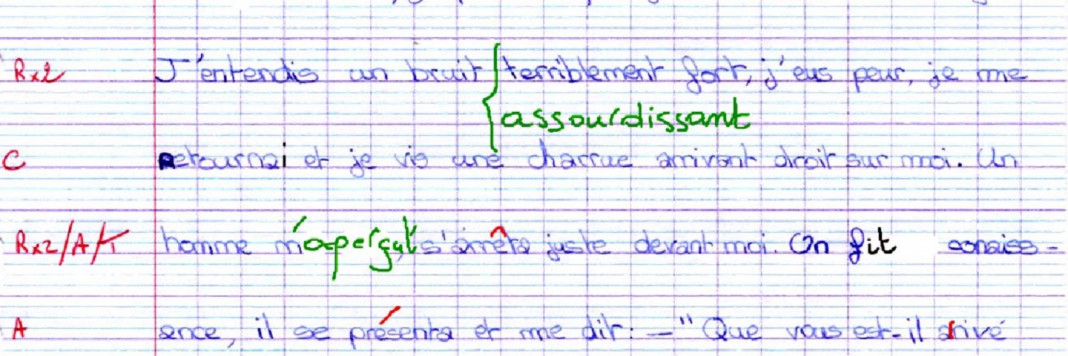 Rx2 J'entendis un bruit terriblement fort, j'eus peur, je me
assourdissant
C retournai et je vis une charrue arrivant droit sur moi. Un
Rx2/A/T homme m'aperçut s'arrêta juste devant moi. On fit conaiss-
A ance, il se présenta et me dit: -"Que vous est-il arivé